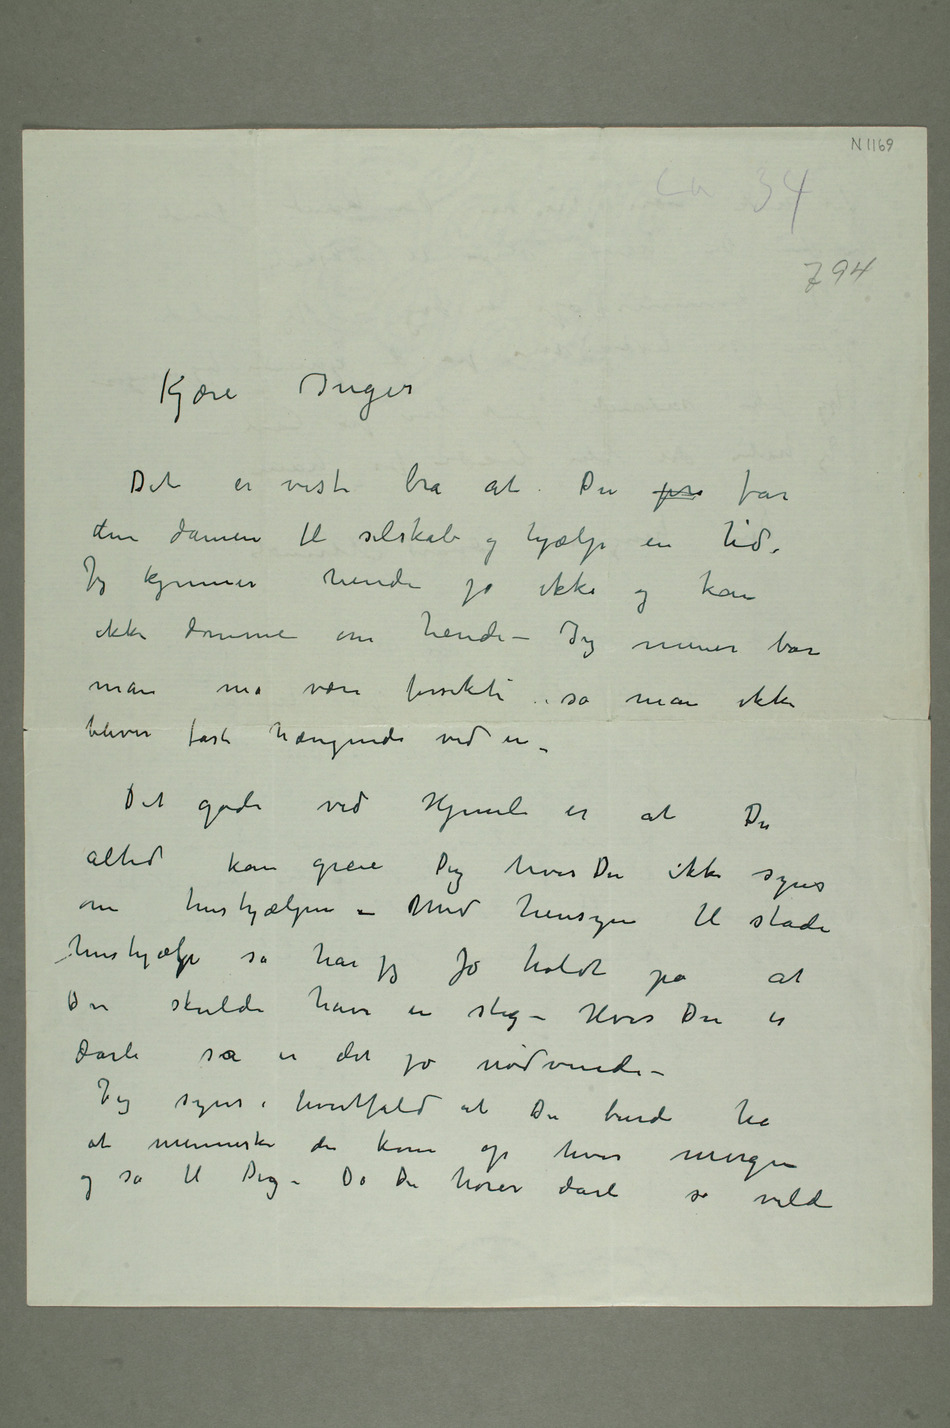 N 1169
ca 34
794
Kjære Inger
Det er visst bra at Du får
den damen til selskab og hjælp en tid.
Jeg kjenner hende jo ikke og kan
ikke dømme om hende – Jeg mener bare
man må være forsikti så man ikke
bliver fast hængende ved en –
Det gode ved Hjemli er at Du
altid kan greie Dig hvis Du ikke synes
om hushjælpen – Med hensyn til stadi
hushjælp så har jeg jo holdt på at
Du skulde have en stig – Hvis Du er
dårli så er det jo nødvendi –
Jeg synes i hvertfald at Du burde ha
et menneske der kom op hver morgen
og så til Dig – Da Du hører dårli så vilde